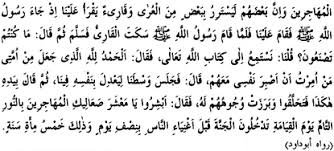 الْمُهَاجِرِينَ وَإِنَّ بَعْضَهُمْ لَيَسْتَتِرُ بِبَعْضٍ مِنَ الْعُرْىِ وَقَارِىءٌ يَقْرَأُ عَلَيْنَا إِذْ جَاءَ رَسُولُ
اللهِ ﷺ فَقَامَ عَلَيْنَا فَلَمَّا قَامَ رَسُولُ اللهِ ﷺ سَكَتَ الْقَارِئُ فَسَلَّمَ ثُمَّ قَالَ: مَا كُنْتُمْ
تَصْنَعُونَ؟ قُلْنَا: نَسْتَمِعُ إِلَى كِتَابِ اللهِ تَعَالَى، فَقَالَ: اَلْحَمْدُ لِلّهِ الَّذِى جَعَلَ مِنْ أُمَّتِى
مَنْ أُمِرْتُ أَنْ أَصْبِرَ نَفْسِى مَعَهُمْ، قَالَ: فَجَلَسَ وَسْطَنَا لِيَعْدِلَ بِنَفْسِهِ فِينَا، ثُمَّ قَالَ بِيَدِهِ
هكَذَا فَتَحَلَّقُوا وَبَرَزَتْ وُجُوهُهُمْ لَهُ، فَقَالَ: أَبْشِرُوا يَا مَعْشَرَ صَعَالِيكِ الْمُهَاجِرِينَ بِالنُّورِ
التَّامِّ يَوْمَ الْقِيَامَةِ تَدْخُلُونَ الْجَنَّةَ قَبْلَ أَغْنِيَاءِ النَّاسِ بِنِصْفِ يَوْمٍ وَذلِكَ خَمْسُ مِأَةِ سَنَةٍ.
(رواه أبوداود)